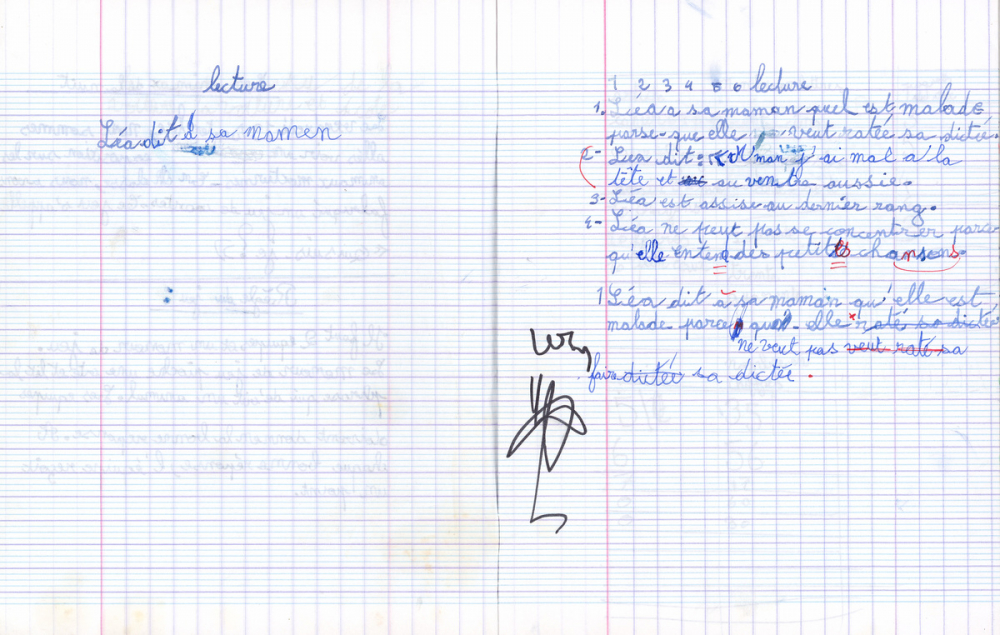 lecture
Léa dit à sa mamen
1 2 3 4 5 6 lecture
1. Léa a sa maman quel est malade
parse-que elle veut ratée sa dictée.
2- Léa dit: M'man j'ai mal a la
tête et au ventre aussie.
3- Léa est assise au dernier rang.
4- Léa ne peut pas se concentrer parce
qu'elle entend des petites chansons.
1 Léa dit à sa maman qu'elle est
malade parce que elle raté sa dictée
ne veut pas veut raté sa
faire dictée sa dictée.